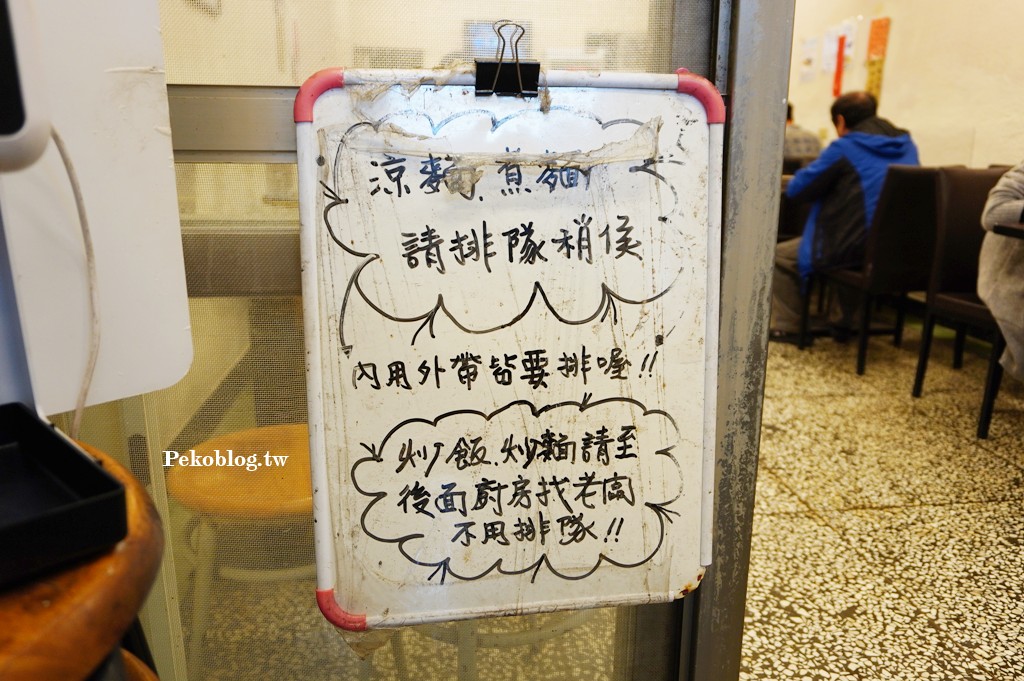 涼麵.煮麵
請排隊稍侯
內用外帶皆要排喔!!
炒飯.炒麵請至
後面廚房找老闆
不用排隊!!
Pekoblog.tw